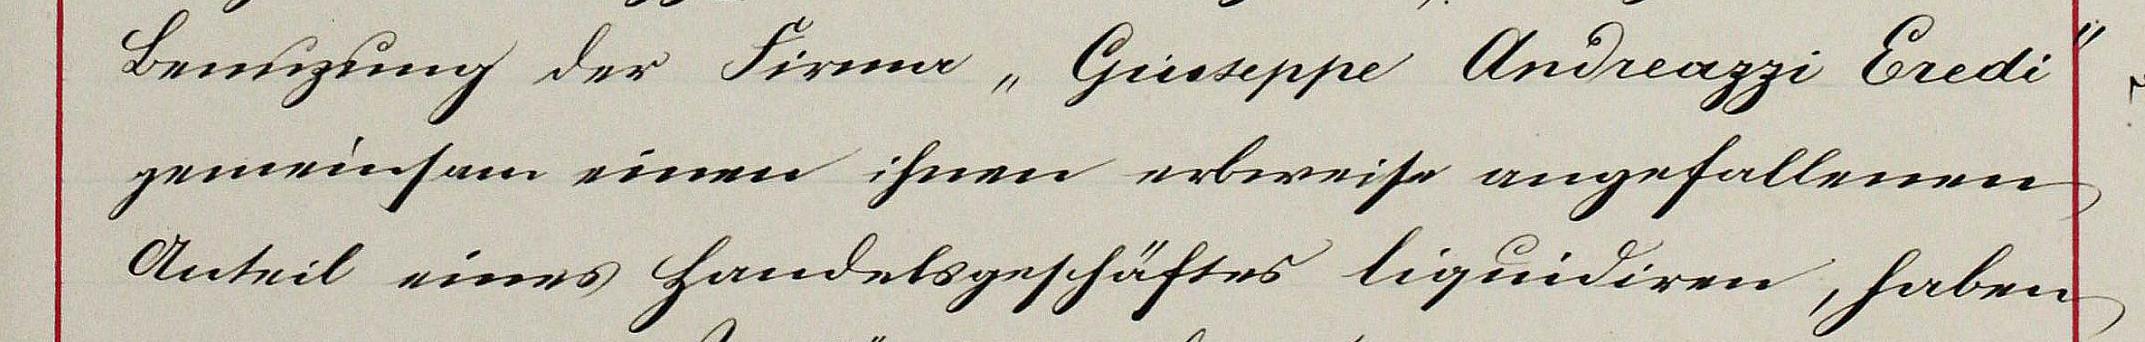 Benuzung der Firma „Giuseppe Andreazzi Eredi"
gemeinsam einen ihnen erbweise angefallenen
Anteil eines Handelsgeschäftes liquidiren, haben